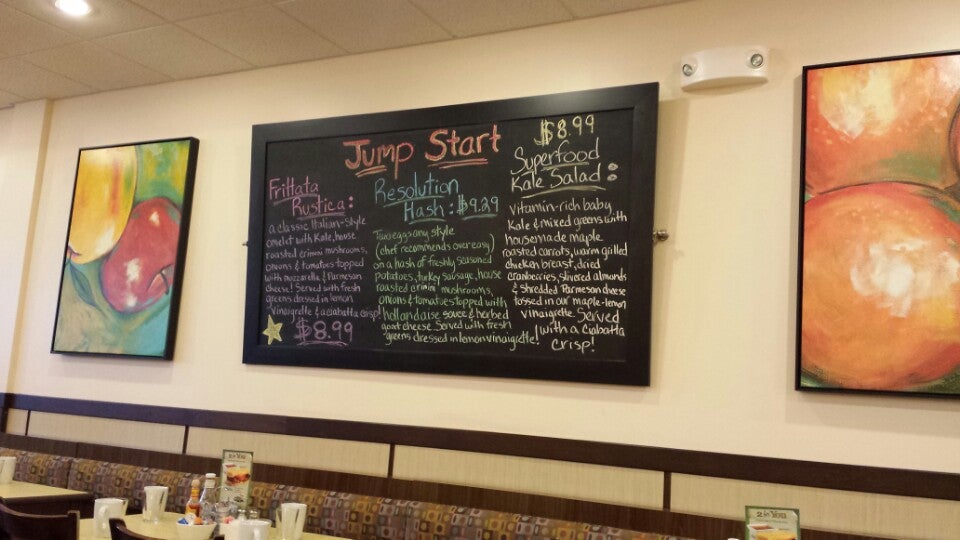 Jump Start
Frittata
Rustica:
a classic Italian-style
omelet with Kale, house
roasted crimini mushrooms,
onions & tomatoes topped
with mozzarella & Parmesan
cheese! Served with fresh
greens dressed in lemon
vinaigrette & a ciabatta crisp!
$8.99
Resolution
Hash: $9.29
Two eggs any style
(chef recommends over easy)
on a hash of freshly seasoned
potatoes, turkey sausage, house
roasted crimini mushrooms,
onions & tomatoes topped with
hollandaise sauce & herbed
goat cheese. Served with fresh
greens dressed in lemon vinaigrette!
$8.99
Superfood
Kale Salad:
vitamin-rich baby
Kale & mixed greens with
housemade maple
roasted carrots, warm grilled
chicken breast, dried
cranberries, slivered almonds
& shredded Parmesan cheese
tossed in our maple-lemon
vinaigrette. Served
with a ciabatta
crisp!
2 for You